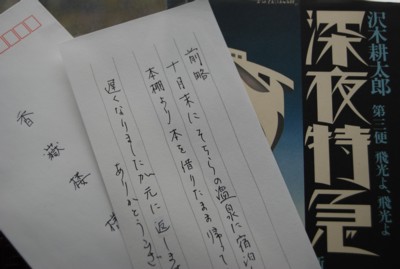 沢木耕太郎
深夜特急
第三便 飛光よ、飛光よ
前略
十月末にそちらの温泉に宿泊
本棚より本を借りたまま帰て
遅くなりましたが元に返しま
ありがとうござ
香嶽楼 様